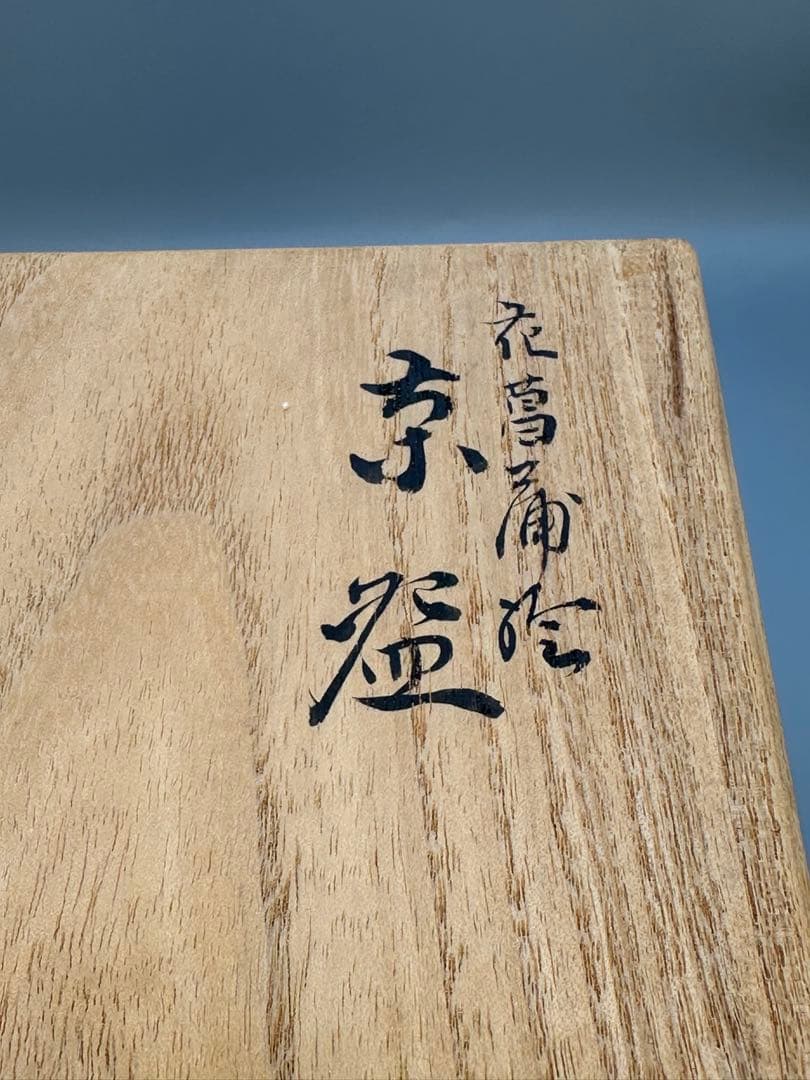 花菖蒲絵
京盆